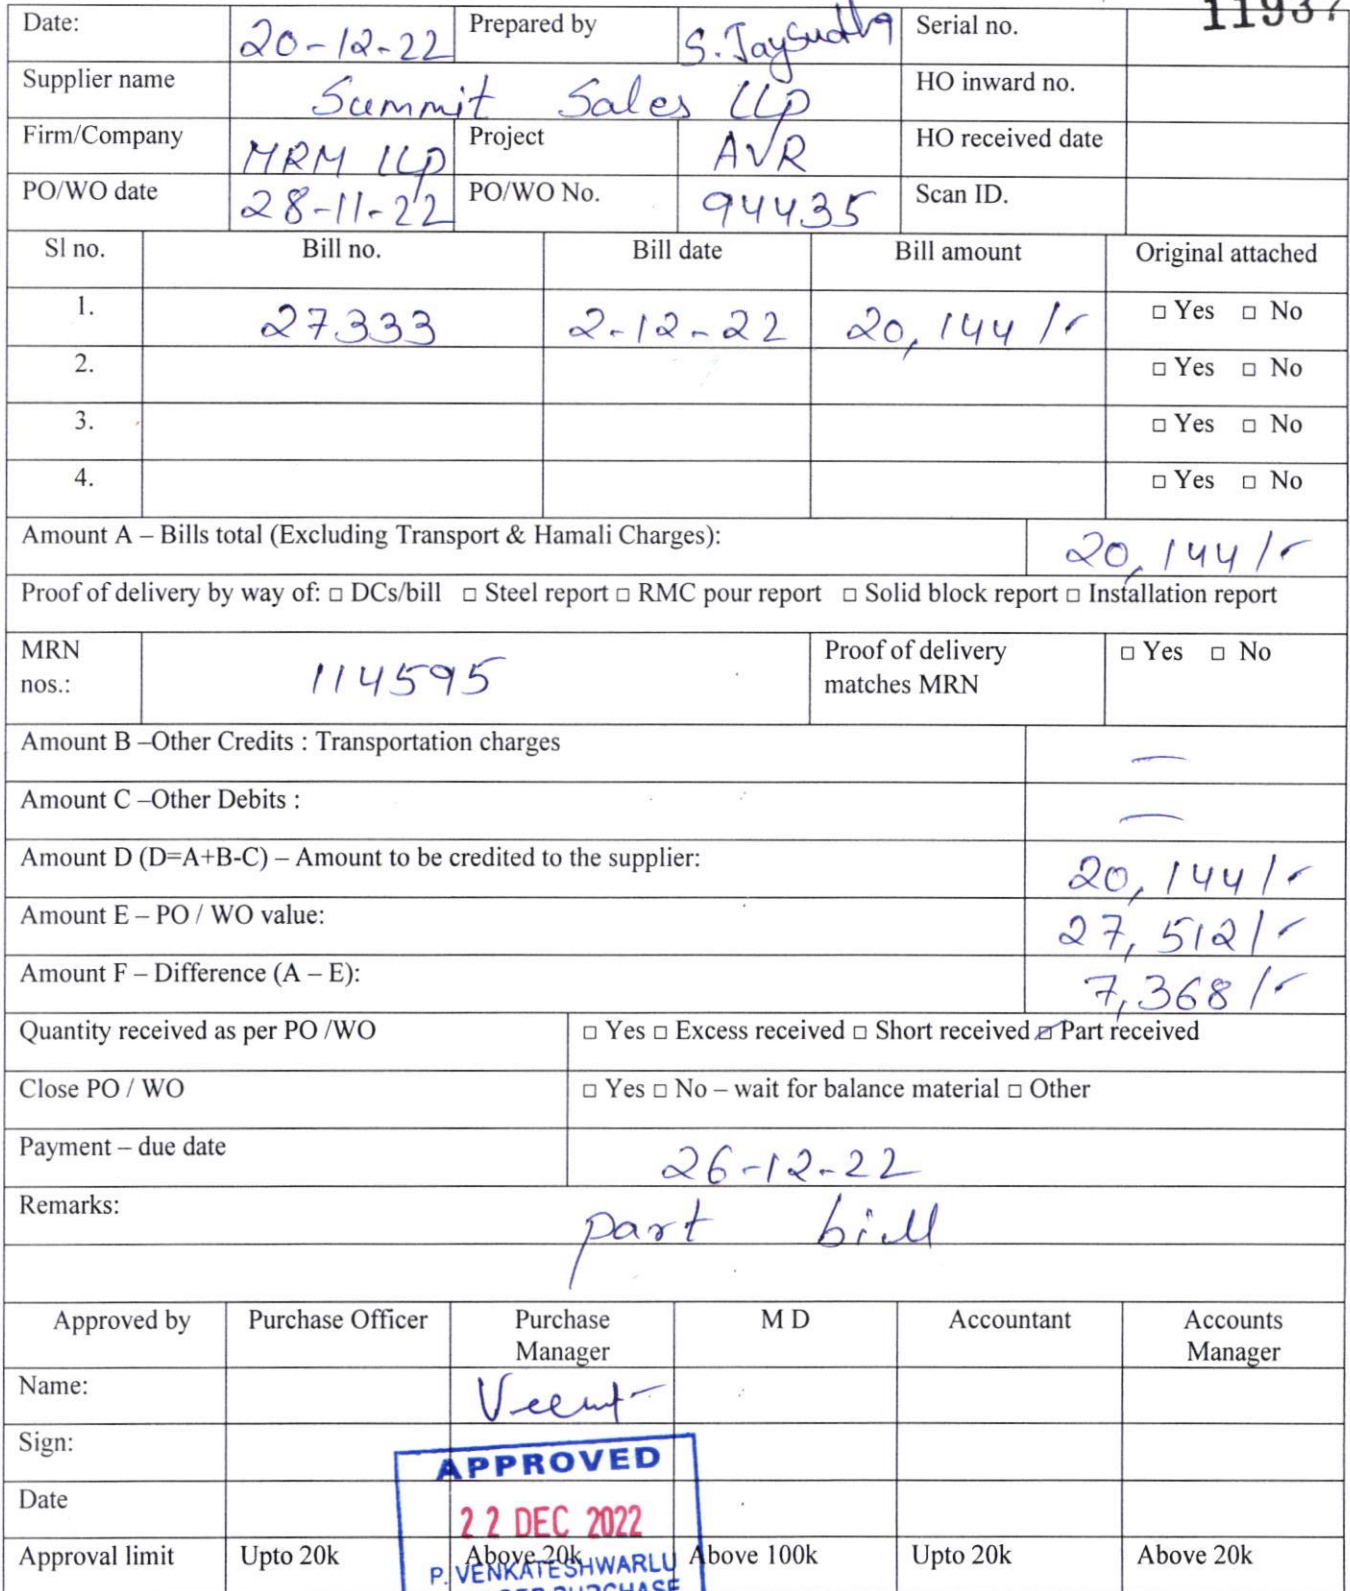 11937
Date: 20-12-22 Prepared by S. Jaysudha Serial no.
Supplier name Summit Sales LLP HO inward no.
Firm/Company MRM LLP Project AVR HO received date
PO/WO date 28-11-22 PO/WO No. 94435 Scan ID.
Sl no. Bill no. Bill date Bill amount Original attached
1. 27333 2-12-22 20,144/- □ Yes □ No
2. □ Yes □ No
3. □ Yes □ No
4. □ Yes □ No
Amount A – Bills total (Excluding Transport & Hamali Charges): 20,144/-
Proof of delivery by way of: □ DCs/bill □ Steel report □ RMC pour report □ Solid block report □ Installation report
MRN nos.: 114595 Proof of delivery matches MRN □ Yes □ No
Amount B –Other Credits : Transportation charges —
Amount C –Other Debits : —
Amount D (D=A+B-C) – Amount to be credited to the supplier: 20,144/-
Amount E – PO / WO value: 27,512/-
Amount F – Difference (A – E): 7,368/-
Quantity received as per PO /WO □ Yes □ Excess received □ Short received ☑ Part received
Close PO / WO □ Yes □ No – wait for balance material □ Other
Payment – due date 26-12-22
Remarks: part bill
Approved by Purchase Officer Purchase Manager M D Accountant Accounts Manager
Name:
Sign:
APPROVED
Date 22 DEC 2022
Approval limit Upto 20k Above 20k Above 100k Upto 20k Above 20k
P. VENKATESHWARLU
PURCHASE